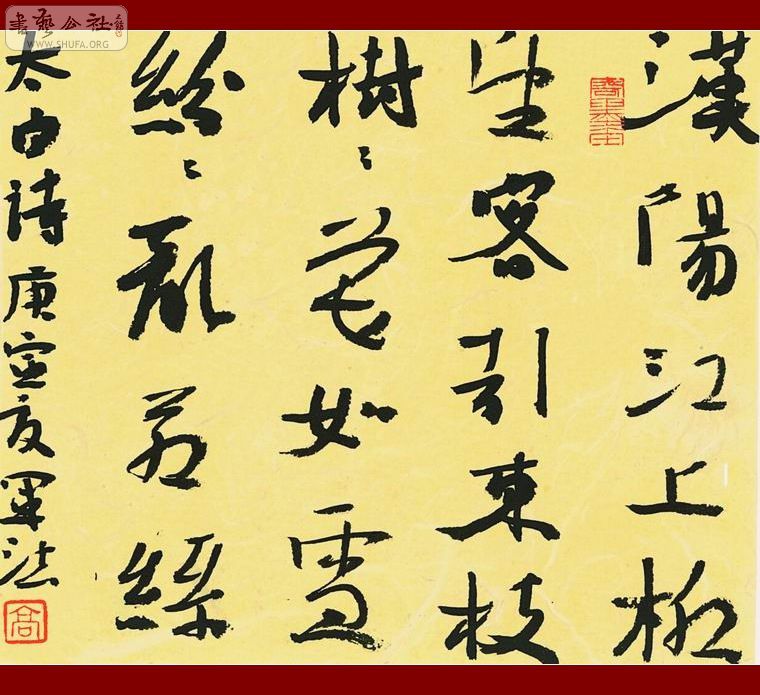 漢陽江上柳
望客引東枝
樹〻花如雪
紛〻亂若絲
太白詩庚寅夏軍法
高
書藝公社
WWW.SHUFA.ORG